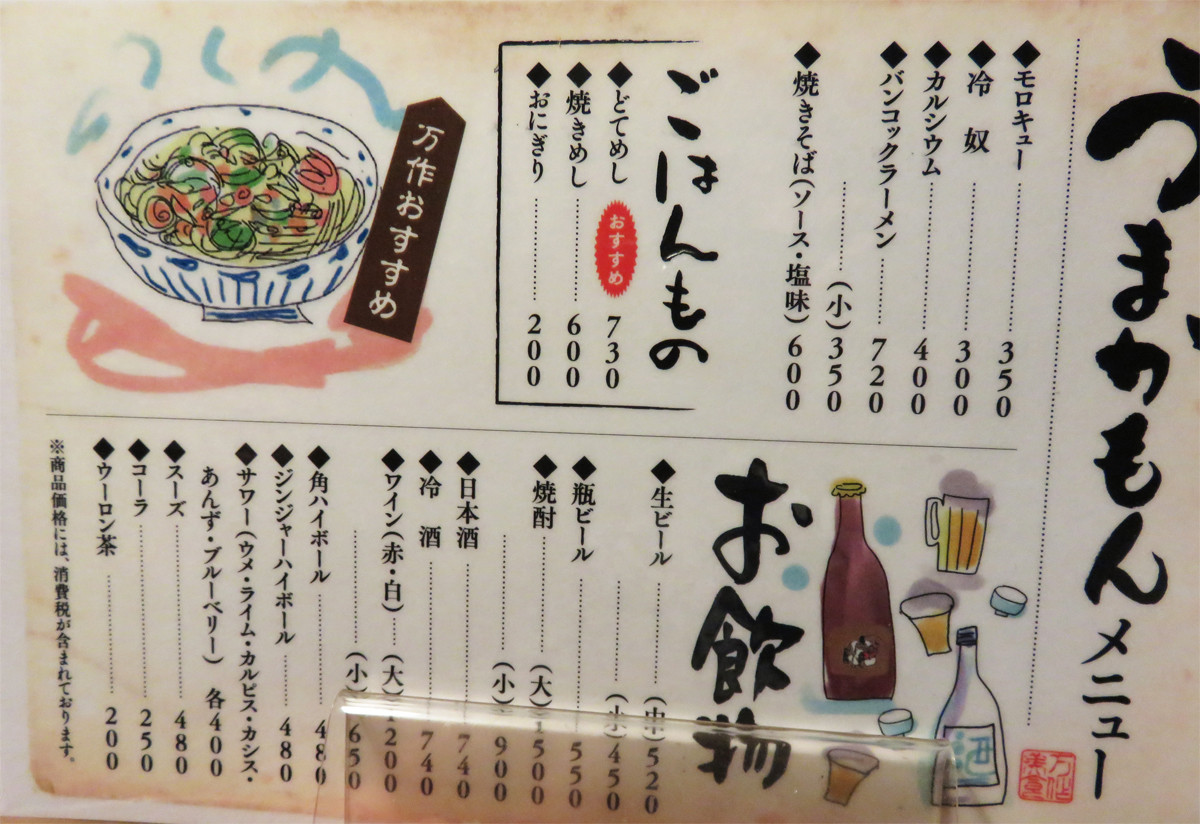 うまかもんメニュー
◆モロキュー 350
◆冷 奴 300
◆カルシウム 400
◆バンコックラーメン 720
(小)350
◆焼きそば(ソース・塩味)600
ごはんもの
◆どてめし おすすめ 730
◆焼きめし 600
◆おにぎり 200
万作おすすめ
お飲物
◆生ビール (中)520
(小)450
◆瓶ビール 550
◆焼酎 (大)1500
(小)900
◆日本酒 740
◆冷 酒 740
◆ワイン(赤・白) (大)1200
(小)650
◆角ハイボール 480
◆ジンジャーハイボール 480
◆サワー(ウメ・ライム・カルピス・カシス・
あんず・ブルーベリー) 各400
◆スーズ 480
◆コーラ 250
◆ウーロン茶 200
※商品価格には、消費税が含まれております。
酒